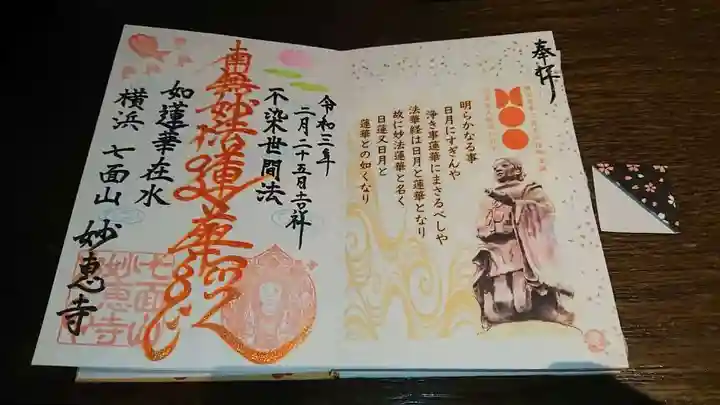 奉拝
明らかなる事
日月にすぎんや
浄き事蓮華にまさるべしや
法華経は日月と蓮華となり
故に妙法蓮華と名く
日蓮又日月と
蓮華との如くなり
令和三年
二月二十五日吉祥
不染世間法
南無妙法蓮華経
如蓮華在水
横浜 七面山 妙恵寺
七面山
妙恵寺